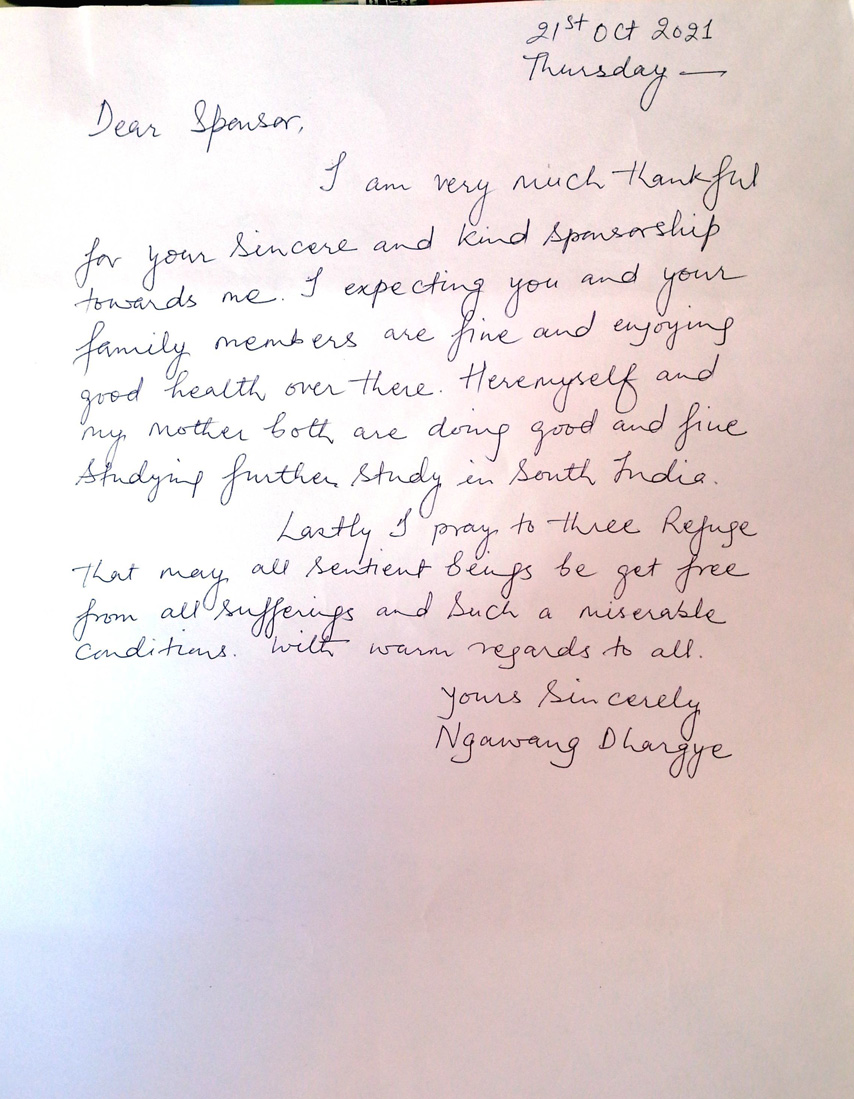 21st Oct 2021
Thursday —
Dear Sponsor,
I am very much thankful
for your sincere and kind sponsorship
towards me. I expecting you and your
family members are fine and enjoying
good health over there. Here myself and
my mother both are doing good and fine
studying further study in South India.
Lastly I pray to three Refuge
that may all sentient beings be get free
from all sufferings and such a miserable
conditions. With warm regards to all.
Yours Sincerely
Ngawang Dhargye